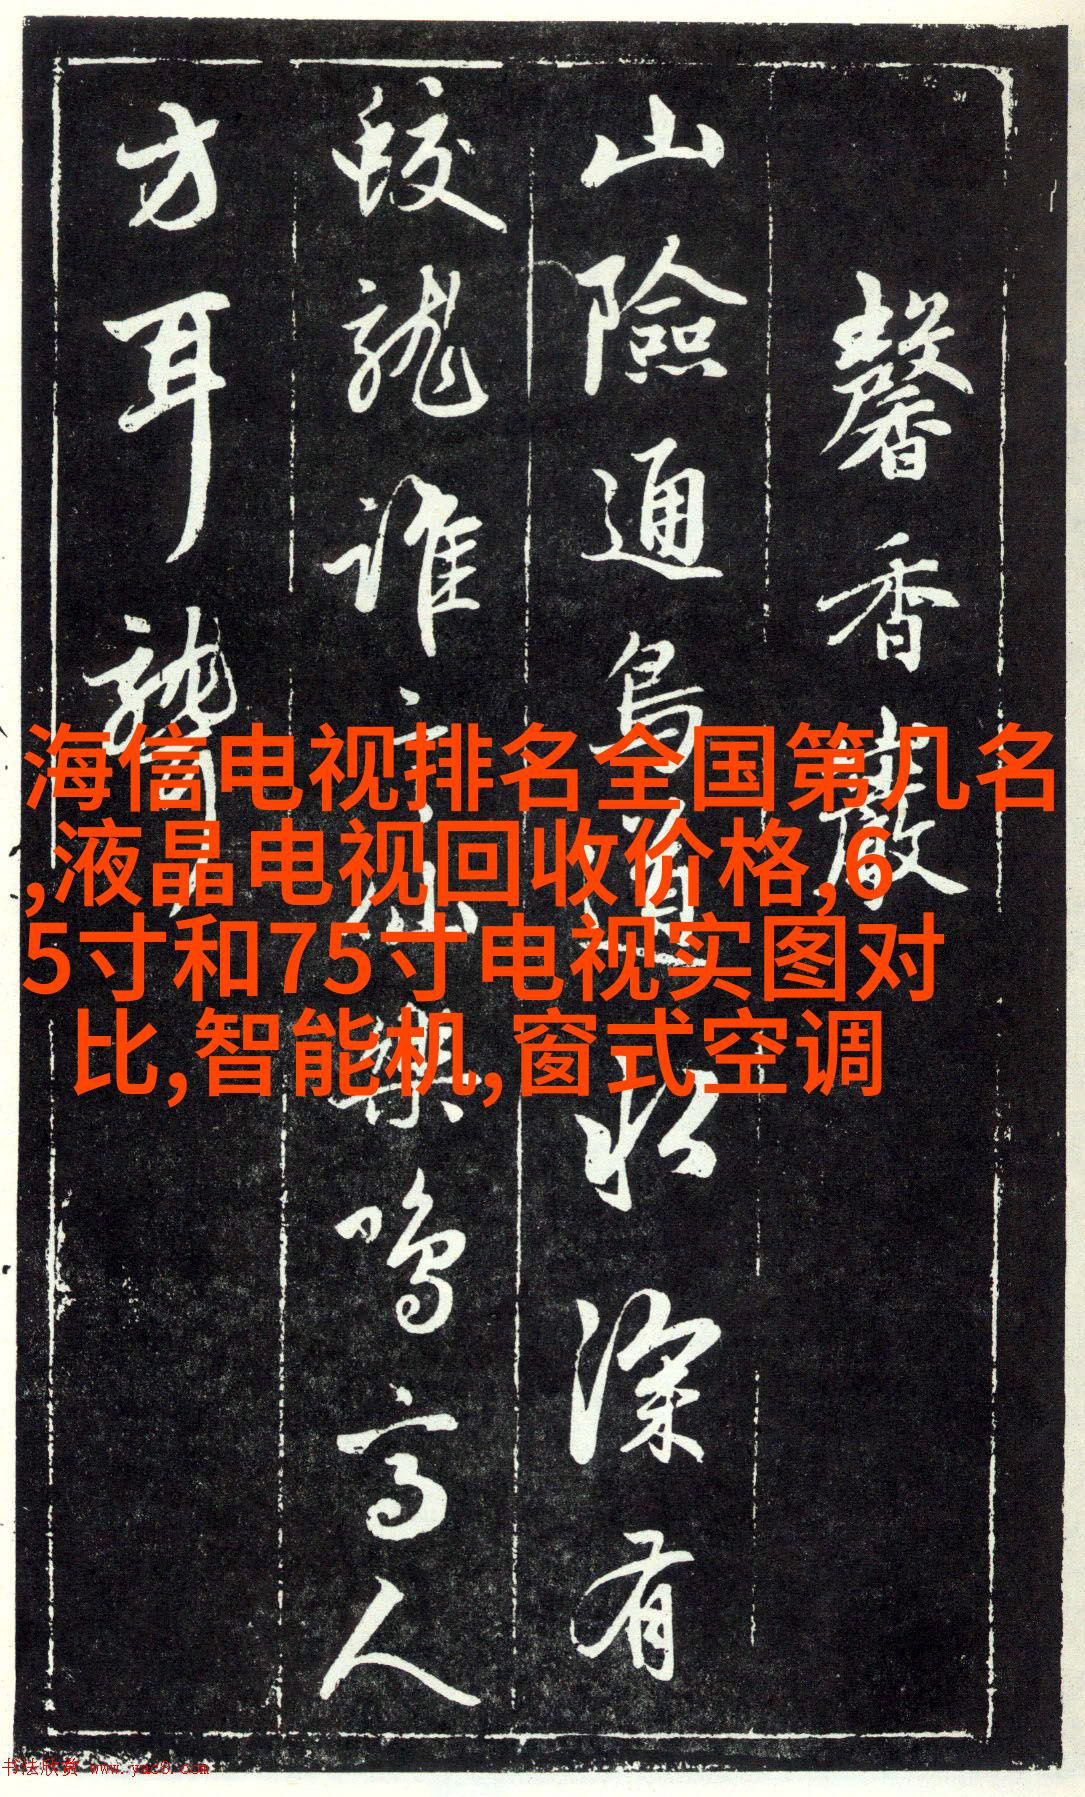 馨香巖
山險通鳥道松深有
蛟龍誰鳴高人
方耳聾
海信电视排名全国第几名
,液晶电视回收价格,6
5寸和75寸电视实图对
比,智能机,窗式空调
书法欣赏 www.yac8.com